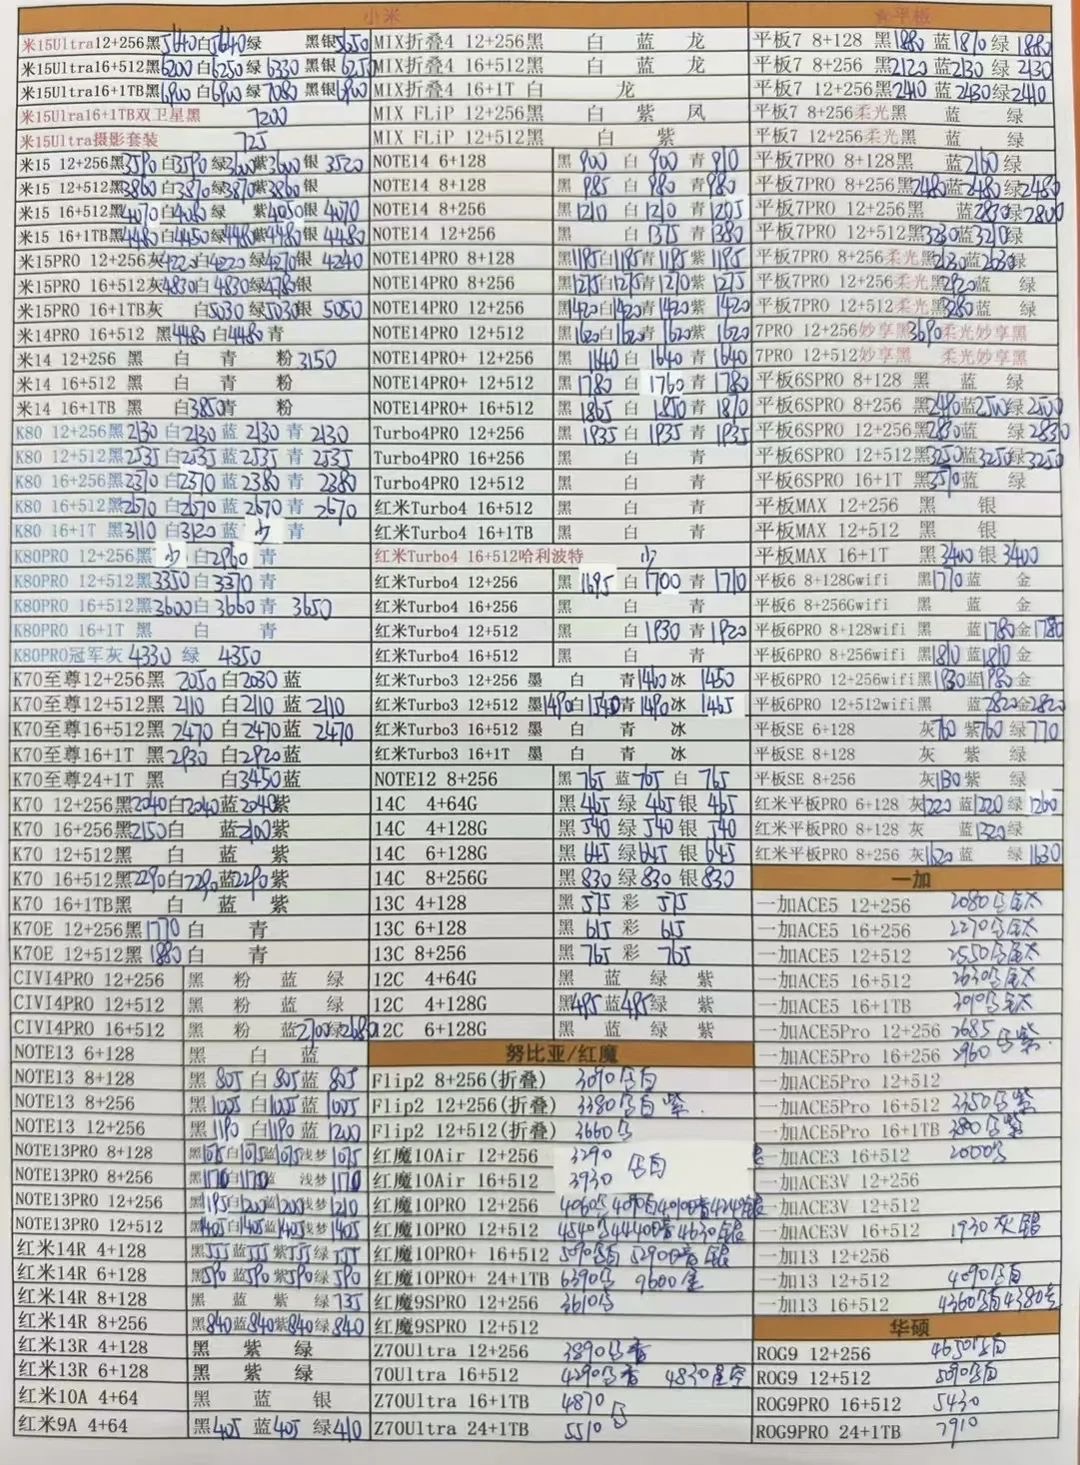 小米
米15Ultra12+256黑5640白5640绿 黑银5650
米15Ultra16+512黑6200白6250绿6330黑银6250
米15Ultra16+1TB黑6900白6900绿7080黑银6900
米15Ulra16+1TB双卫星黑 7200
米15Ultra摄影套装 725
米15 12+256黑3590白3590绿3600紫3600银 3520
米15 12+512黑3860白3870绿3870紫3860银
米15 16+512黑4070白4080绿 紫4050银 4070
米15 16+1TB黑4480白4450绿4480紫4480银 4480
米15PRO 12+256灰4220白4220绿4270银 4240
米15PRO 16+512灰4830白4830绿4780银
米15PRO 16+1TB灰 白5030绿5030银 5050
米14PRO 16+512 黑4480白4480青
米14 12+256 黑 白 青 粉3150
米14 16+512 黑 白 青 粉
米14 16+1TB 黑 白3850青 粉
K80 12+256黑2130 白2130 蓝 2130 青 2130
K80 12+512黑2535 白2535 蓝2535 青 2535
K80 16+256黑2370 白2370 蓝2380 青 2380
K80 16+512黑2670 白2670 蓝2670 青 2670
K80 16+1T 黑3110 白3120 蓝 少 青
K80PRO 12+256黑 少 白2960 青
K80PRO 12+512黑3350 白3370 青
K80PRO 16+512黑3600白3660 青 3650
K80PRO 16+1T 黑 白 青
K80PRO冠军灰 4330 绿 4350
K70至尊12+256黑 2050 白2030 蓝
K70至尊12+512黑 2110 白2110 蓝 2110
K70至尊16+512黑 2470 白2470蓝 2470
K70至尊16+1T 黑 2930 白2920蓝
K70至尊24+1T 黑 白3450蓝
K70 12+256黑2040白2040蓝2040紫
K70 16+256黑2150白 蓝2100紫
K70 12+512黑 白 蓝 紫
K70 16+512黑2290白2290蓝2290紫
K70 16+1TB黑 白 蓝 紫
K70E 12+256黑1770 白 青
K70E 12+512黑1880 白 青
CIVI4PRO 12+256 黑 粉 蓝 绿
CIVI4PRO 12+512 黑 粉 蓝 绿
CIVI4PRO 16+512 黑 粉 蓝2700绿2680
NOTE13 6+128 黑 白 蓝
NOTE13 8+128 黑 805 白 805 蓝 805
NOTE13 8+256 黑 1005 白1005 蓝 1005
NOTE13 12+256 黑 1190 白1190 蓝 1200
NOTE13PRO 8+128 黑1075白1075蓝1075浅梦 1075
NOTE13PRO 8+256 黑1170白1170蓝 浅梦 1170
NOTE13PRO 12+256 黑1195白1200蓝1205浅梦1210
NOTE13PRO 12+512 黑1405白1405蓝1405浅梦1405
红米14R 4+128 黑555蓝555紫555绿 555
红米14R 6+128 黑590蓝590紫590绿590
红米14R 8+128 黑 蓝 紫 绿735
红米14R 8+256 黑840蓝840紫840绿840
红米13R 4+128 黑 紫 绿
红米13R 6+128 黑 紫 绿
红米10A 4+64 黑 蓝 银
红米9A 4+64 黑405 蓝405 绿410
MIX折叠4 12+256黑 白 蓝 龙
MIX折叠4 16+512黑 白 蓝 龙
MIX折叠4 16+1T 白 龙
MIX FLiP 12+256黑 白 紫 凤
MIX FLiP 12+512黑 白 紫
NOTE14 6+128 黑 900 白 900 青 910
NOTE14 8+128 黑 985 白 980 青980
NOTE14 8+256 黑1210 白1210 青1205
NOTE14 12+256 黑 白1375 青1380
NOTE14PRO 8+128 黑1195白1185青1185紫1195
NOTE14PRO 8+256 黑1275白1275青1270紫1275
NOTE14PRO 12+256 黑1420白1420青1420紫1420
NOTE14PRO 12+512 黑1620白1620青1620紫1620
NOTE14PRO+ 12+256 黑 1640 白 1640 青1640
NOTE14PRO+ 12+512 黑1780 白 1760 青 1780
NOTE14PRO+ 16+512 黑1865 白 1850 青 1870
Turbo4PRO 12+256 黑1935 白 1935 青 1935
Turbo4PRO 16+256 黑 白 青
Turbo4PRO 12+512 黑 白 青
红米Turbo4 16+512 黑 白 青
红米Turbo4 16+1TB 黑 白 青
红米Turbo4 16+512哈利波特 少
红米Turbo4 12+256 黑 1695 白1700青1710
红米Turbo4 16+256 黑 白 青
红米Turbo4 12+512 黑 白1930 青1920
红米Turbo4 16+512 黑 白 青
红米Turbo3 12+256 墨 白 青1460冰 1450
红米Turbo3 12+512 墨1490白1540青1490冰 1465
红米Turbo3 16+512 墨 白 青 冰
红米Turbo3 16+1T 墨 白 青 冰
NOTE12 8+256 黑 765 蓝765 白 765
14C 4+64G 黑 465 绿 465 银 465
14C 4+128G 黑540 绿 540 银 540
14C 6+128G 黑645 绿645 银645
14C 8+256G 黑830 绿830 银830
13C 4+128 黑 575 彩 575
13C 6+128 黑 615 彩 615
13C 8+256 黑 765 彩 765
12C 4+64G 黑 蓝 绿 紫
12C 4+128G 黑495 蓝495绿 紫
12C 6+128G 黑 蓝 绿 紫
努比亚/红魔
Flip2 8+256(折叠) 3090 白
Flip2 12+256(折叠) 3380 白紫
Flip2 12+512(折叠) 3660
红魔10Air 12+256 3290
红魔10Air 16+512 3930 白
红魔10PRO 12+256
红魔10PRO 12+512
红魔10PRO+ 16+512
红魔10PRO+ 24+1TB 6390 9600
红魔9SPRO 12+256 3610
红魔9SPRO 12+512
Z70Ultra 12+256 3890
70Ultra 16+512 4290 4830星空
Z70Ultra 16+1TB 4870
Z70Ultra 24+1TB 5510
平板
平板7 8+128 黑1880 蓝1870 绿1880
平板7 8+256 黑2120 蓝2130 绿 2130
平板7 12+256 黑2410 蓝2430绿2410
平板7 8+256柔光黑 蓝 绿
平板7 12+256柔光黑 蓝 绿
平板7PRO 8+128黑 蓝2160 绿
平板7PRO 8+256黑2480蓝2480绿2480
平板7PRO 12+256黑 蓝2830绿2800
平板7PRO 12+512黑3230蓝3210绿
平板7PRO 8+256柔光黑2630蓝2630绿
平板7PRO 12+256柔光黑2920蓝 绿
平板7PRO 12+512柔光黑3280蓝 绿
7PRO 12+256妙享黑3690 柔光妙享黑
7PRO 12+512妙享黑 柔光妙享黑
平板6SPRO 8+128 黑 蓝 绿
平板6SPRO 8+256 黑2490蓝2500绿2500
平板6SPRO 12+256黑2830蓝 绿2830
平板6SPRO 12+512黑3250蓝3250绿3250
平板6SPRO 16+1T 黑3570蓝 绿
平板MAX 12+256 黑 银
平板MAX 12+512 黑 银
平板MAX 16+1T 黑3400 银3400
平板6 8+128Gwifi 黑1770蓝 金
平板6 8+256Gwifi 黑 蓝 金
平板6PRO 8+128wifi 黑 蓝1780金1780
平板6PRO 8+256wifi 黑1810 蓝1810 金
平板6PRO 12+256wifi黑1930蓝1980金
平板6PRO 12+512wifi黑 蓝2820金2820
平板SE 6+128 灰760 紫760 绿770
平板SE 8+128 灰 紫 绿
平板SE 8+256 灰1130 紫 绿
红米平板PRO 6+128 灰1220 蓝1220 绿1260
红米平板PRO 8+128 灰 蓝1320绿
红米平板PRO 8+256 灰1620 蓝 绿1630
一加
一加ACE5 12+256 2080 钛
一加ACE5 16+256 2270 钛
一加ACE5 12+512 2550 钛
一加ACE5 16+512 2630 钛
一加ACE5 16+1TB 3090 钛
一加ACE5Pro 12+256 2685
一加ACE5Pro 16+256 2960 紫
一加ACE5Pro 12+512
一加ACE5Pro 16+512 3350 紫
一加ACE5Pro 16+1TB 紫
一加ACE3 16+512 2000
一加ACE3V 12+256
一加ACE3V 12+512
一加ACE3V 16+512 1930 灰银
一加13 12+256
一加13 12+512 4090 白
一加13 16+512 4360 白4380
华硕
ROG9 12+256 4650 白
ROG9 12+512 5090 白
ROG9PRO 16+512 5430
ROG9PRO 24+1TB 7910